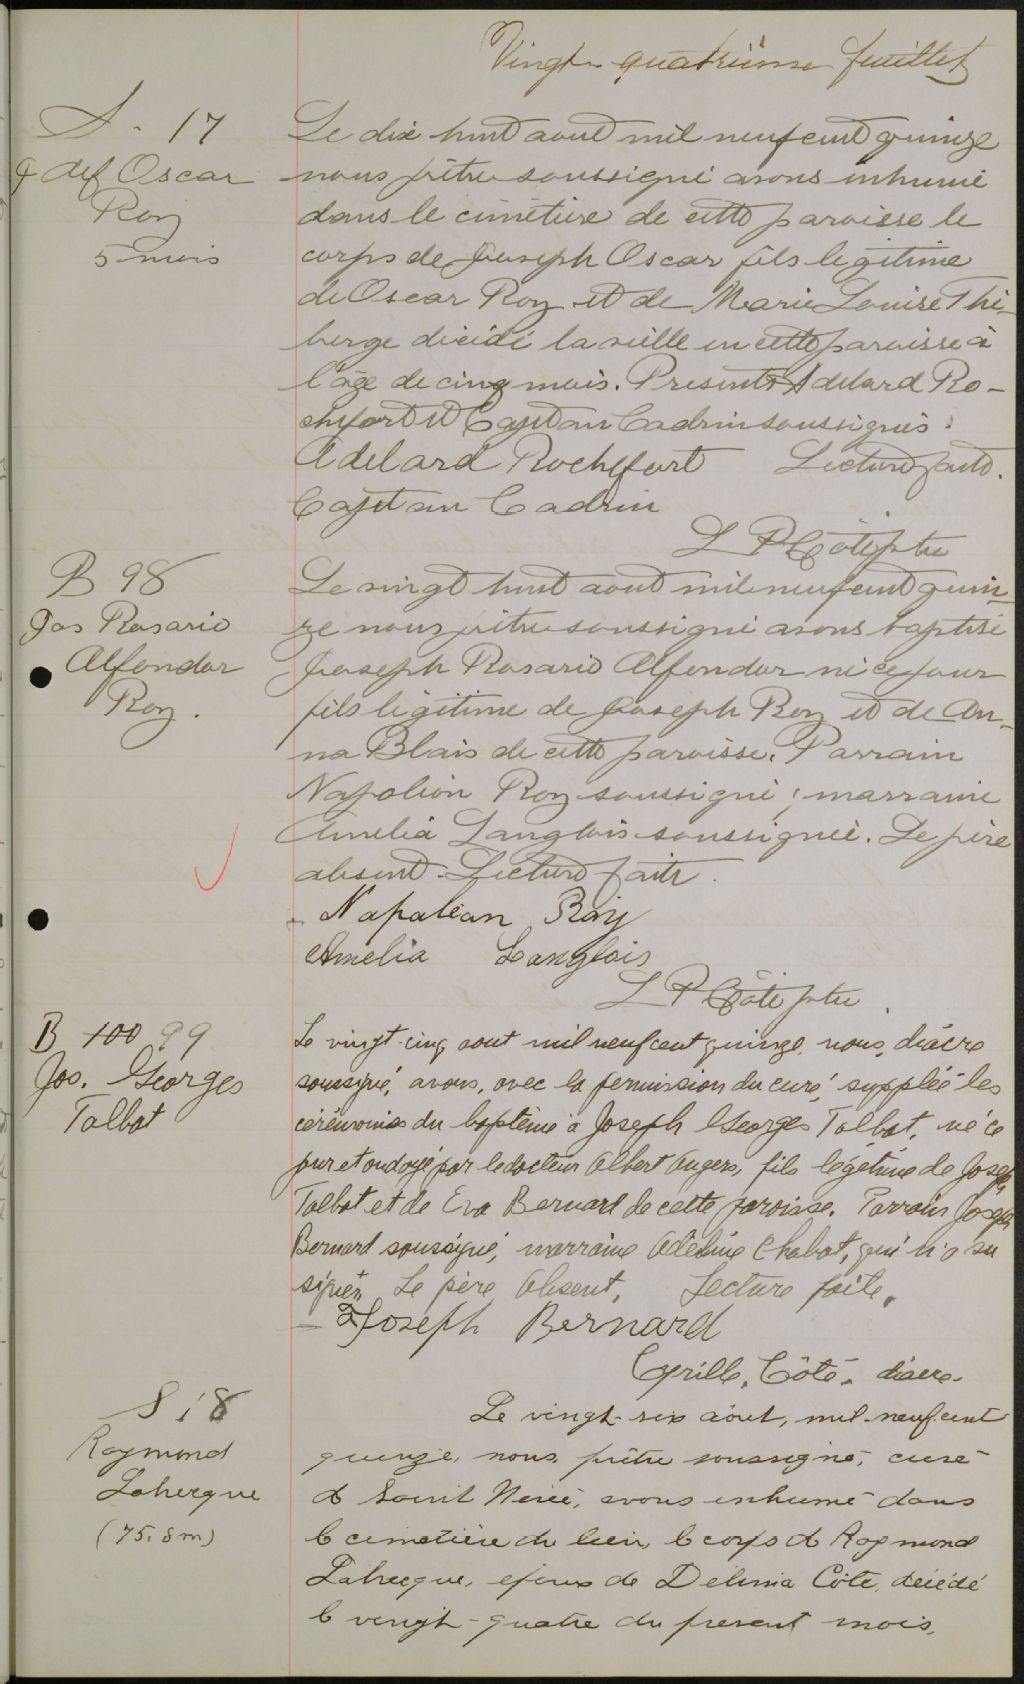 Vingt quatrième feuillet
S. 17
def Oscar
Roy
5 mois
Le dix huit aout mil neuf cent quinze
nous prêtre soussigné avons inhumé
dans le cimetière de cette paroisse le
corps de Joseph Oscar fils légitime
de Oscar Roy et de Marie Louise Thi-
berge décédé la veille en cette paroisse à
l'âge de cinq mois. Presents Adelard Ro-
chefort et Cajetan Cadrin soussignés.
Adelard Rochefort Lecture faite.
Cajetan Cadrin
L P Côté ptre
B 98
Jos Rosario
Alfondor
Roy.
Le vingt huit aout mil neuf cent quin-
ze nous prêtre soussigné avons baptisé
Joseph Rosario Alfondor né ce jour
fils légitime de Joseph Roy et de An-
na Blais de cette paroisse. Parrain
Napoléon Roy soussigné; marraine
Amelia Langlois soussignée. Le père
absent. Lecture faite.
Napoléan Roy
Amelia Langlois
L P Côté ptre.
B 100 99
Jos. Georges
Talbot
Le vingt-cinq aout mil neuf cent quinze, nous, diacre
soussigné, avons, avec la permission du curé, supplée les
cérémonies du baptême à Joseph Georges Talbot, né ce
jour et ondoyé par le docteur Albert Angers, fils légitime de Joseph
Talbot et de Eva Bernard de cette paroisse. Parrain Joseph
Bernard soussigné, marraine Adeline Chabot, qui n'a su
signer. Le père absent. Lecture faite.
Joseph Bernard
Cyrille Côté, diacre.
S 18
Raymond
Labrecque
(75. 8 m)
Le vingt-six août, mil-neuf-cent
quinze, nous, prêtre soussigné, curé
de Saint Nérée, avons inhumé dans
le cimetière du lieu, le corps de Raymond
Labrecque, époux de Delima Côté, décédé
le vingt-quatre du présent mois,